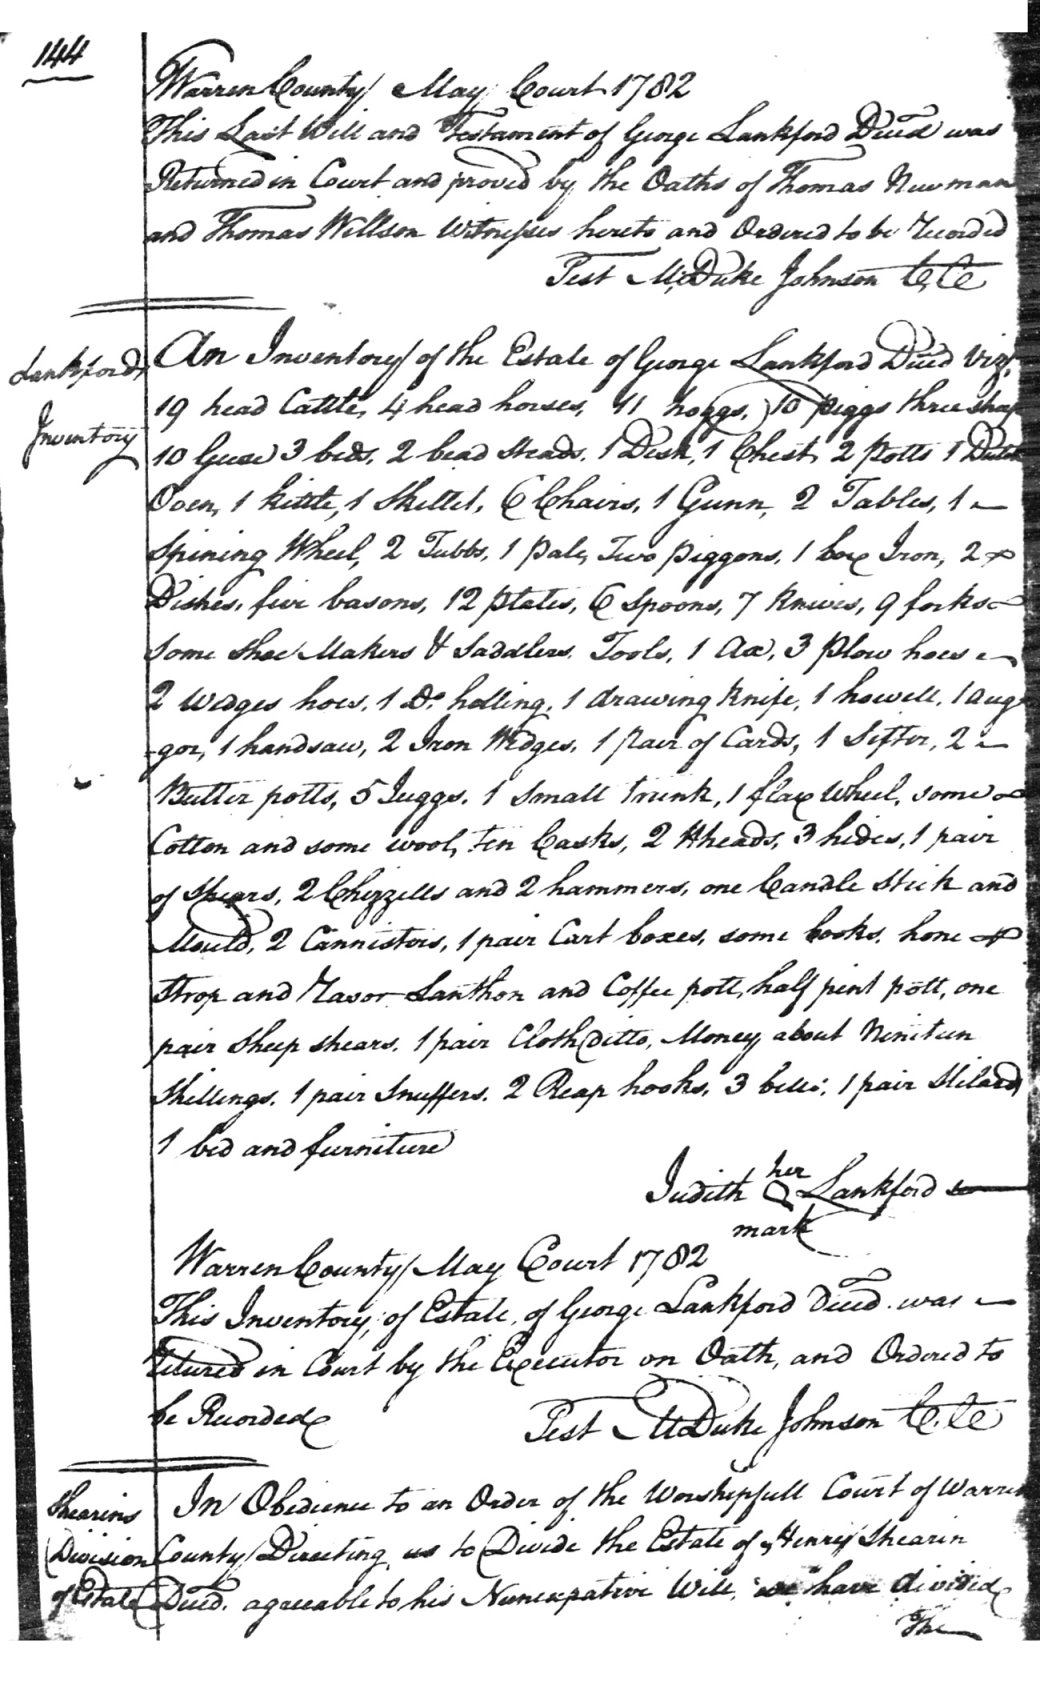 144
Warren County May Court 1782
This Last Will and Testament of George Lankford Deced was
Returned in Court and proved by the Oaths of Thomas Newman
and Thomas Willson Witnesses hereto and Ordered to be Recorded
Test M. Duke Johnson C. C.
Lankfords
Inventory
An Inventory of the Estate of George Lankford Deced Vizt.
19 head Cattle, 4 head horses, 11 hoggs, 10 piggs three sheep
10 Geese 3 beds, 2 bead steads, 1 Desk, 1 Chest, 2 potts 1 Dutch
Oven, 1 kittle, 1 Skillet, 6 Chairs, 1 Gunn, 2 Tables, 1
Spining Wheel, 2 Tubbs, 1 pale, Two piggons, 1 box Iron, 2
Dishes, five basons, 12 plates, 6 Spoons, 7 knives, 9 forks
some shoe Makers & Saddlers Tools, 1 Ax, 3 plow hoes
2 Wedges hoes, 1 Do. holling, 1 drawing knife, 1 howell, 1 aug
-gor, 1 handsaw, 2 Iron Wedges, 1 pair of Cards, 1 Sifter, 2
Butter potts, 5 Juggs, 1 small trunk, 1 flax Wheel, some
Cotton and some wool, ten Casks, 2 Hheads, 3 hides, 1 pair
of Spears, 2 Chizzells and 2 hammers, one Candle stick and
Mould, 2 Cannistors, 1 pair Cart boxes, some books, hone
strop and Razor Lanthon and Coffee pott, half pint pott, one
pair sheep shears, 1 pair Cloth ditto, Money about Ninteen
Shillings, 1 pair Snuffers, 2 Reap hooks, 3 bells, 1 pair Stilards
1 bed and furniture
her
Judith Lankford
mark
Warren County May Court 1782
This Inventory of Estate of George Lankford Deced. was
retured in Court by the Executor on Oath, and Ordered to
be Recorded
Test M. Duke Johnson C. C.
Shearins
Division
of Estate
In Obedience to an Order of the Worshipfull Court of Warren
County Directing us to Divide the Estate of Henry Shearin
Deced. agreeable to his Nuncupative Will, we have divided
The